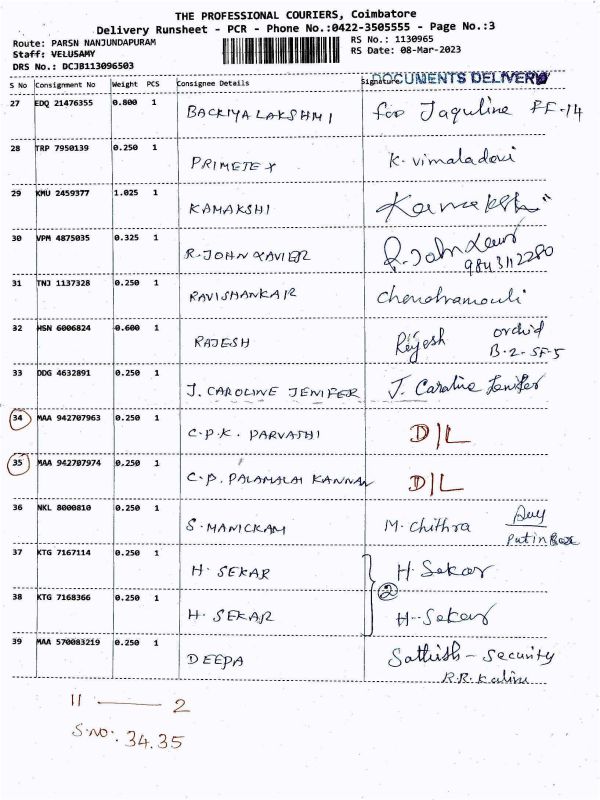 THE PROFESSIONAL COURIERS, Coimbatore
Delivery Runsheet - PCR - Phone No.:0422-3505555 - Page No.:3
Route: PARSN NANJUNDAPURAM RS No.: 1130965
Staff: VELUSAMY RS Date: 08-Mar-2023
DRS No.: DCJB113096503
S No Consignment No Weight PCS Consignee Details Signature DOCUMENTS DELIVERY
27 EDQ 21476355 0.800 1 BACKIYALAKSHMI for Jaquline FF-14
28 TRP 7950139 0.250 1 PRIMETEX K. Vimaladevi
29 KMU 2459377 1.025 1 KAMAKSHI
30 VPM 4875035 0.325 1 R. JOHN XAVIER R. John
31 TNJ 1137328 0.250 1 RAVISHANKAR Chandramouli
32 HSN 6006824 0.600 1 RAJESH Rajesh orchid
B-2-SF-5
33 DDG 4632891 0.250 1 J. CAROLINE JENIFER J. Caroline Jenifer
34 MAA 942707963 0.250 1 C.P.K. PARVATHI D/L
35 MAA 942707974 0.250 1 C.P. PALAMALAI KANNAN D/L
36 NKL 8000810 0.250 1 S. MANICKAM M. Chithra
Put in Box
37 KTG 7167114 0.250 1 H. SEKAR H. Sekar
2
38 KTG 7168366 0.250 1 H. SEKAR H. Sekar
39 MAA 570083219 0.250 1 DEEPA Sathish - Security
R.R.
11 — 2
S.NO: 34.35